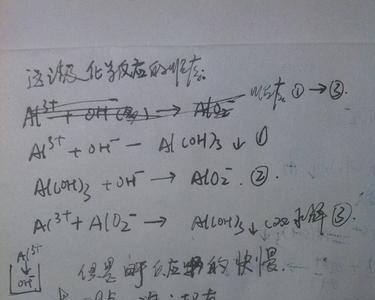 这涉及化学反应的顺序.
Al³⁺ + OH⁻ → AlO₂⁻ 顺序 ① → ③.
Al³⁺ + OH⁻ — Al(OH)₃ ↓ ①
Al(OH)₃ + OH⁻ → AlO₂⁻. ②.
Al³⁺ + AlO₂⁻ → Al(OH)₃ ↓ 水解 ③.
Al³⁺
↓
OH⁻
但是 反应的快慢.